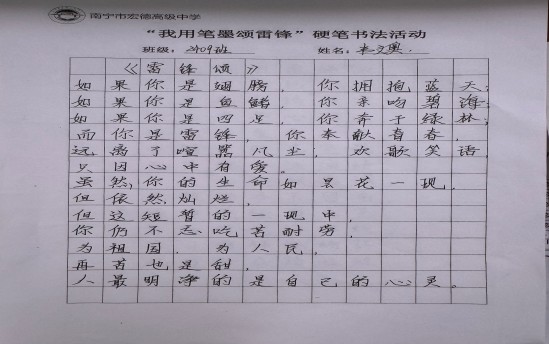 南宁市宏德高级中学
“我用笔墨颂雷锋”硬笔书法活动
班级：2409班 姓名：韦文奥
《雷锋颂》
如果你是翅膀，你拥抱蓝天；
如果你是鱼鳍，你亲吻碧海；
如果你是四足，你奔于绿林；
而你是雷锋，你奉献青春，
远离了喧嚣凡尘，欢歌笑语，
只因心中有爱。
虽然，你的生命如昙花一现，
但依然灿烂，
但这短暂的一现中，
你仍不忘吃苦耐劳，
为祖国，为人民，
再苦也是甜，
人最明净的是自己的心灵。